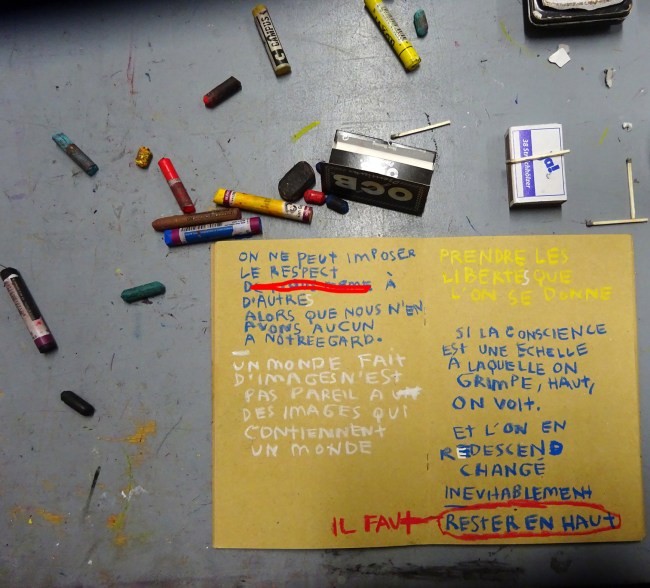 ON NE PEUT IMPOSER
LE RESPECT
À
D'AUTRES
ALORS QUE NOUS N'EN
AVONS AUCUN
A NOTRE EGARD.
UN MONDE FAIT
D'IMAGES N'EST
PAS PAREIL A
DES IMAGES QUI
CONTIENNENT
UN MONDE
PRENDRE LES
LIBERTES QUE
L'ON SE DONNE
SI LA CONSCIENCE
EST UNE ECHELLE
A LAQUELLE ON
GRIMPE, HAUT,
ON VOIT.
ET L'ON EN
REDESCEND
CHANGÉ
INEVITABLEMENT
IL FAUT RESTER EN HAUT
OCB
38 Streichhölzer
CAMPUS